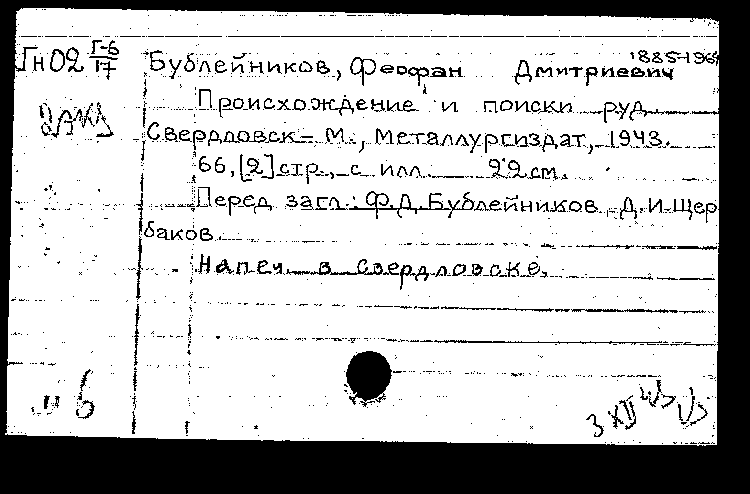 Гн 02 Г-6/17
1885-196
Бублейников, Феофан Дмитриевич
Происхождение и поиски руд.
Свердловск - М., Металлургиздат, 1943.
66, [2] стр., с илл. 22 см.
Перед загл.: Ф.Д. Бублейников, Д.И. Щер
баков.
Напеч. в Свердловске.
б
3 XII